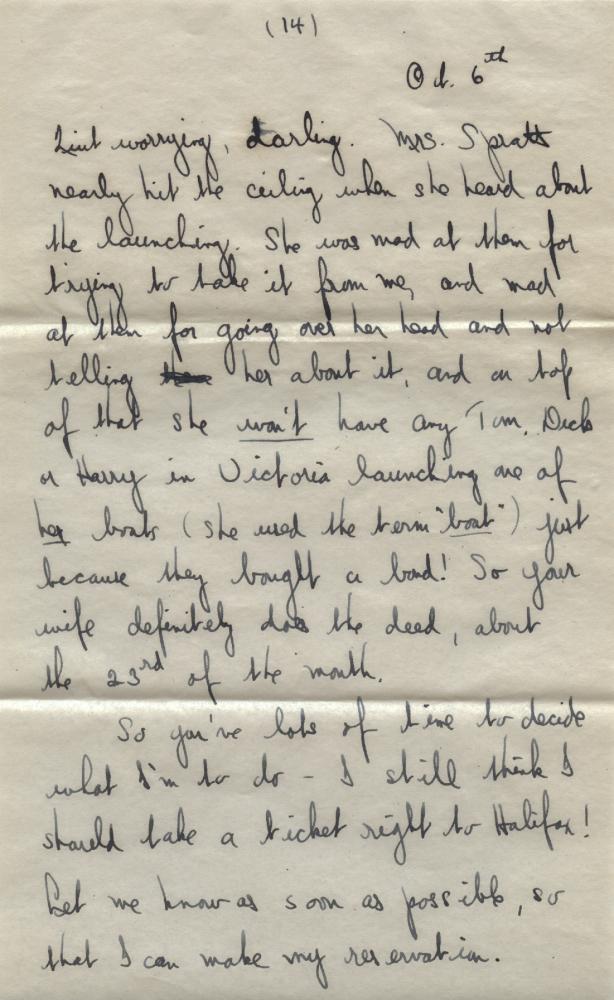 (14)
Oct. 6th
Quit worrying, darling. Mrs. Spratt
nearly hit the ceiling when she heard about
the launching. She was mad at them for
trying to take it from me, and mad
at them for going over her head and not
telling her about it, and on top
of that she won't have any Tom, Dick
or Harry in Victoria launching one of
her boats (she used the term "boat") just
because they bought a bond! So your
wife definitely does the deed, about
the 23rd of the month.
So you've lots of time to decide
what I'm to do - I still think I
should take a ticket right to Halifax!
Let me know as soon as possible, so
that I can make my reservation.